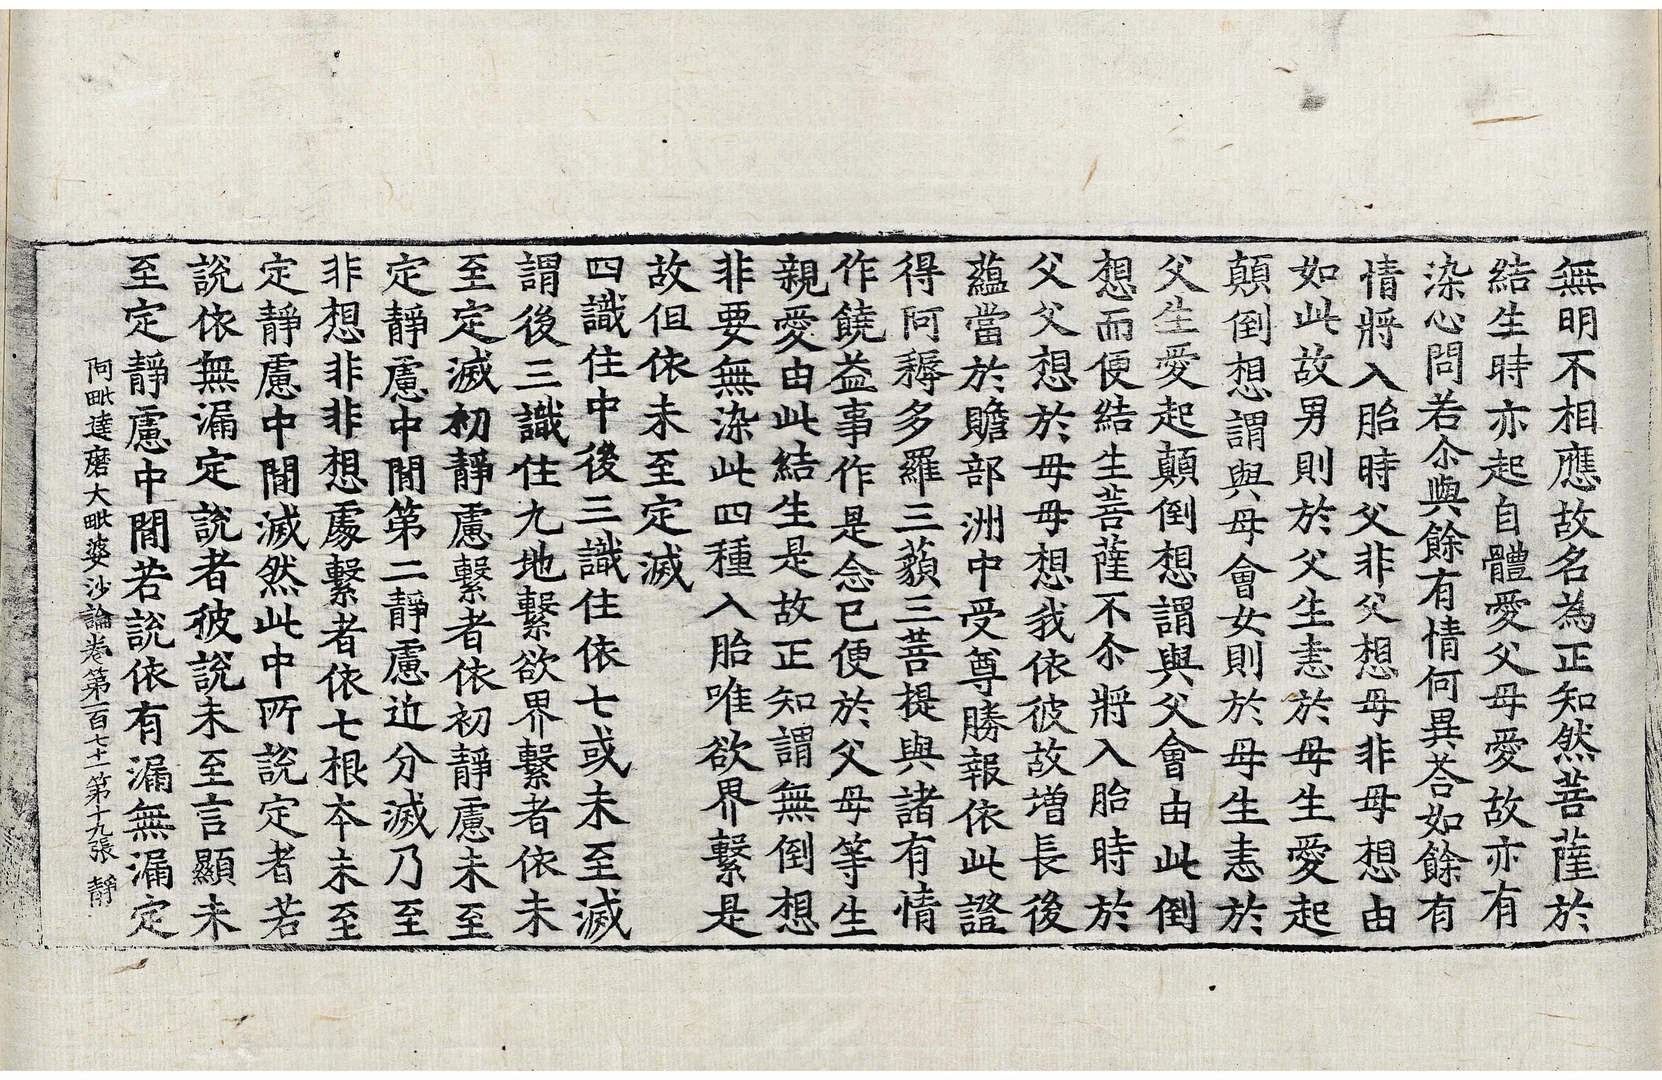 無明不相應故名為正知然菩薩於
結生時亦起自體愛父母愛故亦有
染心問若尒與餘有情何異荅如餘有
情將入胎時父非父想母非母想由
如此故男則於父生恚於母生愛起
顛倒想謂與母會女則於母生恚於
父生愛起顛倒想謂與父會由此倒
想而便結生菩薩不尒將入胎時於
父父想於母母想我依彼故增長後
蘊當於贍部洲中受尊勝報依此證
得阿耨多羅三藐三菩提與諸有情
作饒益事作是念已便於父母等生
親愛由此結生是故正知謂無倒想
非要無染此四種入胎唯欲界繫是
故但依未至定滅
四識住中後三識住依七或未至滅
謂後三識住九地繫欲界繫者依未
至定滅初靜慮繫者依初靜慮未至
定靜慮中閒第二靜慮近分滅乃至
非想非非想處繫者依七根本未至
定靜慮中閒滅然此中所說定者若
說依無漏定說者彼說未至言顯未
至定靜慮中閒若說依有漏無漏定
阿毗達磨大毗婆沙論卷第一百七十一 第十九張 靜